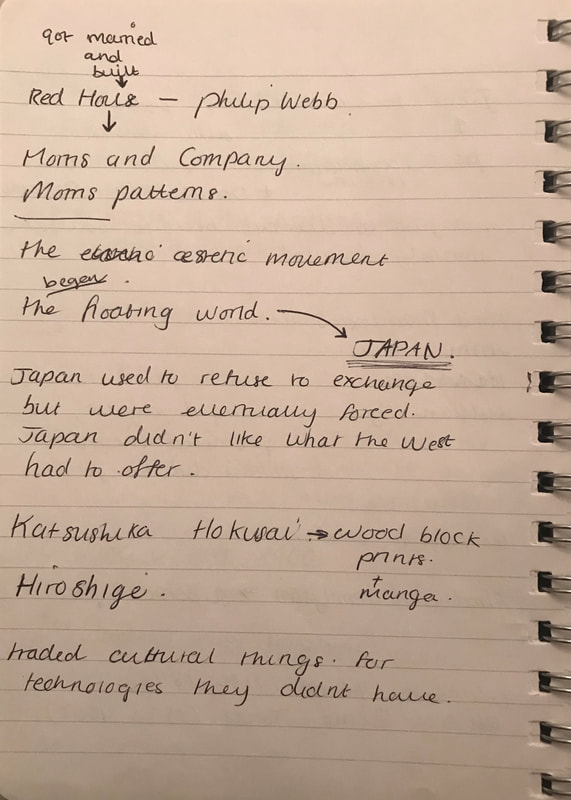 got married
and
built
Red House — Philip Webb.
Morris and Company.
Morris patterns.
the aestetic movement
began.
the floating world.
JAPAN.
Japan used to refuse to exchange
but were eventually forced.
Japan didn't like what the West
had to offer.
Katsushika Hokusai → wood block
prints.
+
Hiroshige. manga.
traded cultural things. for
technologies they didnt have.